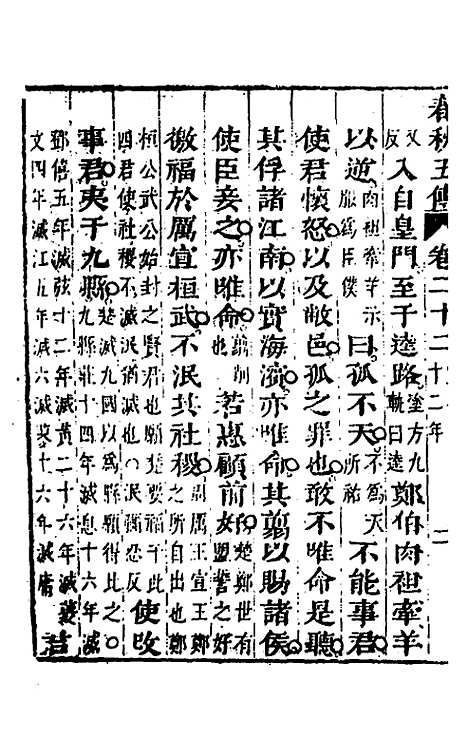 春秋五傳 卷二十二 十二年 二
又反入自皇門至于逵路塗方九軌曰逵鄭伯肉袒牽羊
以逆肉袒牽羊示服爲臣僕曰孤不天不爲天所祐不能事君
使君懷怒以及敝邑孤之罪也敢不唯命是聽
其俘諸江南以實海濱亦唯命其翦以賜諸侯
使臣妾之亦唯命翦削也若惠顧前好楚鄭世有盟誓之好
徼福於厲宣桓武不泯其社稷周厲王宣王鄭之所自出也鄭
桓公武公始封之賢君也願楚要福于此四君使社稷不滅泯猶滅也泯彌忍反使改
事君夷于九縣楚滅九國以爲縣願得比之九縣莊十四年滅息十六年滅
鄧僖五年滅弦十二年滅黃二十六年滅夔文四年滅江五年滅六滅蓼十六年滅庸君